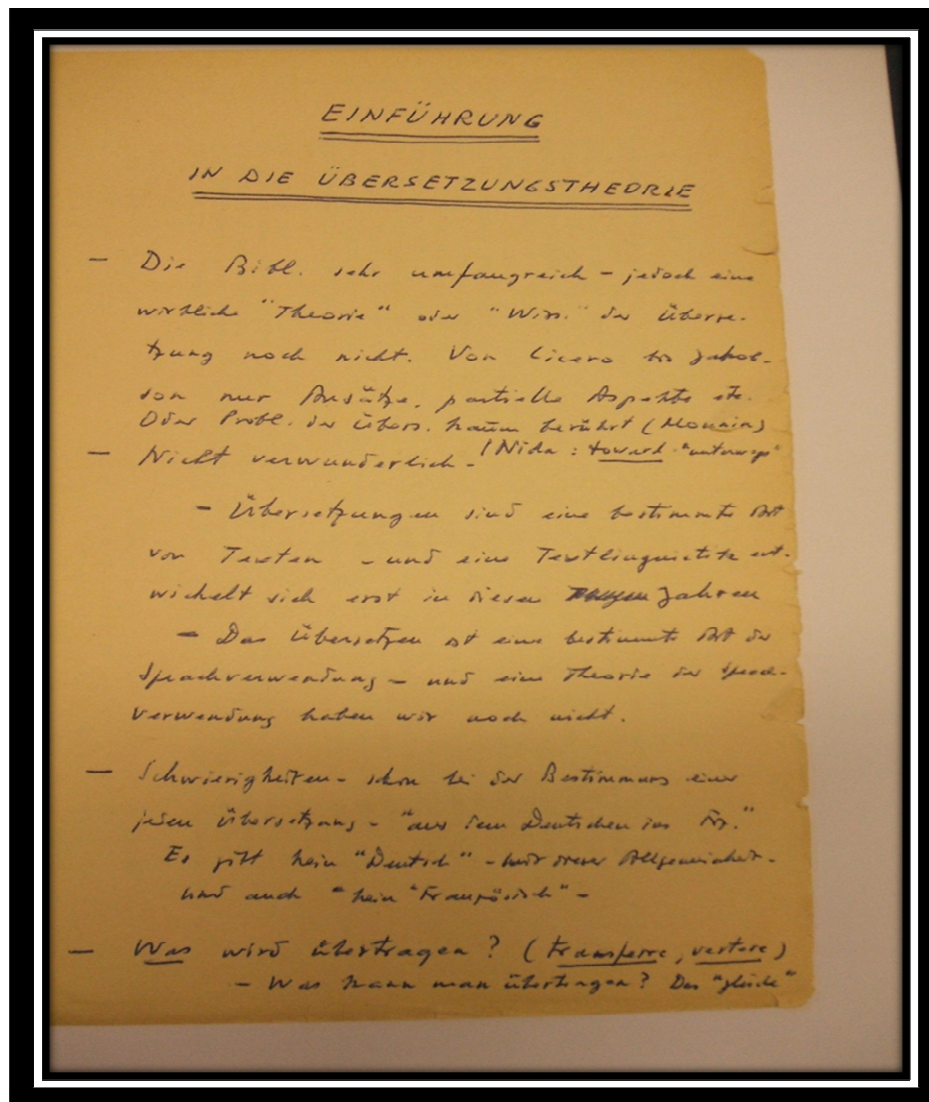 EINFÜHRUNG
IN DIE ÜBERSETZUNGSTHEORIE
— Die Bibl. sehr umfangreich – jedoch eine
wirkliche "Theorie" oder "Wiss." der Überse-
tzung noch nicht. Von Cicero bis Jakob-
son nur Ansätze, partielle Aspekte etc.
Oder Probl. der Übers. kaum berührt (Mounin)
— Nicht verwunderlich – / Nida : toward "unterwegs"
– Übersetzungen sind eine bestimmte Art
von Texten – und eine Textlinguistik ent-
wickelt sich erst in diesen Jahren
– Das Übersetzen ist eine bestimmte Art der
Sprachverwendung – und eine Theorie der Sprach-
verwendung haben wir noch nicht.
— Schwierigkeiten – schon bei der Bestimmung einer
jeden Übersetzung – "aus dem Deutschen ins Fr."
Es gibt kein "Deutsch" – mit dieser Allgemeinheit –
und auch "kein "Französisch" –
— Was wird übertragen? (transferre, vertere)
– Was kann man übertragen? Das "gleiche"